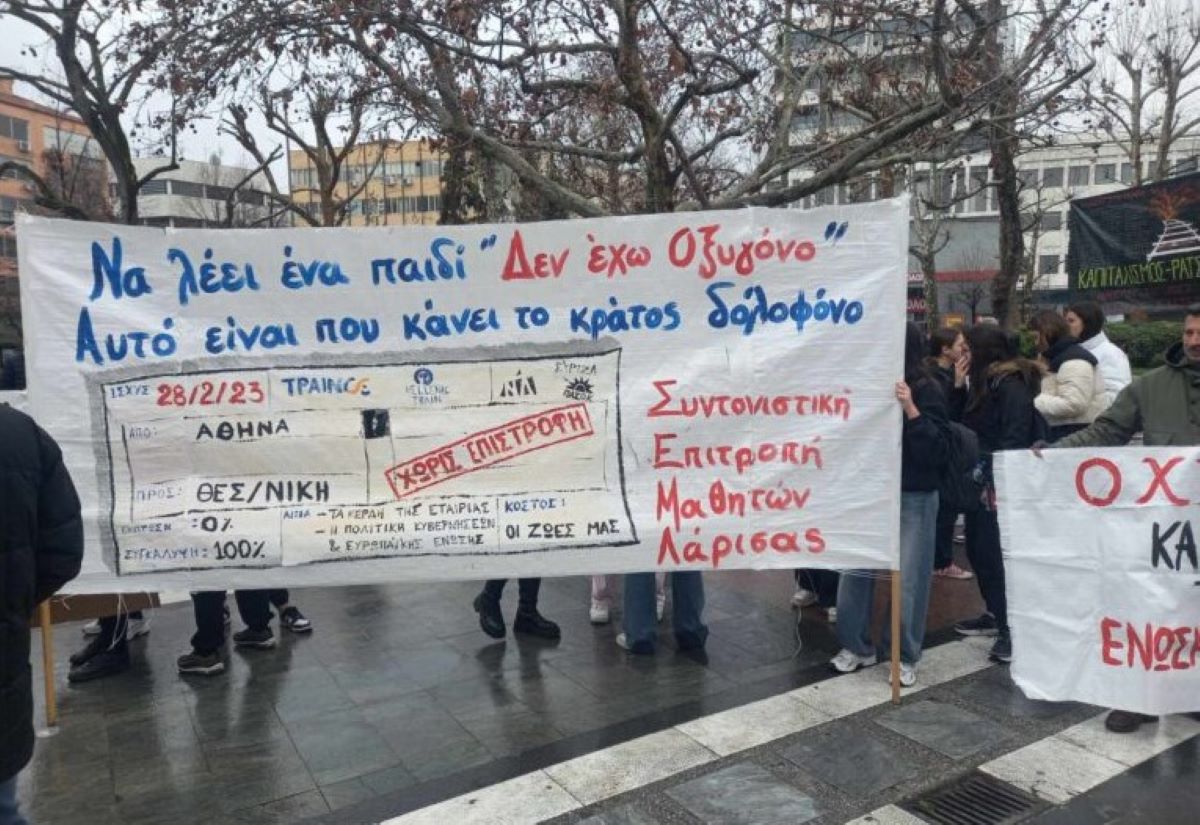 Να λέει ένα παιδί "Δεν έχω Οξυγόνο"
Αυτό είναι που κάνει το κράτος δολοφόνο
ΙΣΧΥΣ 28/2/23 ΤΡΑΙΝΟΣΕ HELLENIC TRAIN ΝΔ ΣΥΡΙΖΑ ΠΑΣΟΚ
ΑΠΟ: ΑΘΗΝΑ
ΧΩΡΙΣ ΕΠΙΣΤΡΟΦΗ
ΠΡΟΣ: ΘΕΣ/ΝΙΚΗ
ΕΚΠΤΩΣΗ : 0%
ΣΥΓΚΑΛΥΨΗ: 100%
ΑΙΤΙΑ - ΤΑ ΚΕΡΔΗ ΤΗΣ ΕΤΑΙΡΙΑΣ
- Η ΠΟΛΙΤΙΚΗ ΚΥΒΕΡΝΗΣΕΩΝ
& ΕΥΡΩΠΑΪΚΗΣ ΕΝΩΣΗΣ
ΚΟΣΤΟΣ:
ΟΙ ΖΩΕΣ ΜΑΣ
Συντονιστική
Επιτροπή
Μαθητών
Λάρισας
ΚΑΠΙΤΑΛΙΣΜΟΣ-ΡΑΤΣ
ΟΧ
ΚΑ
ΕΝΩΣΗ